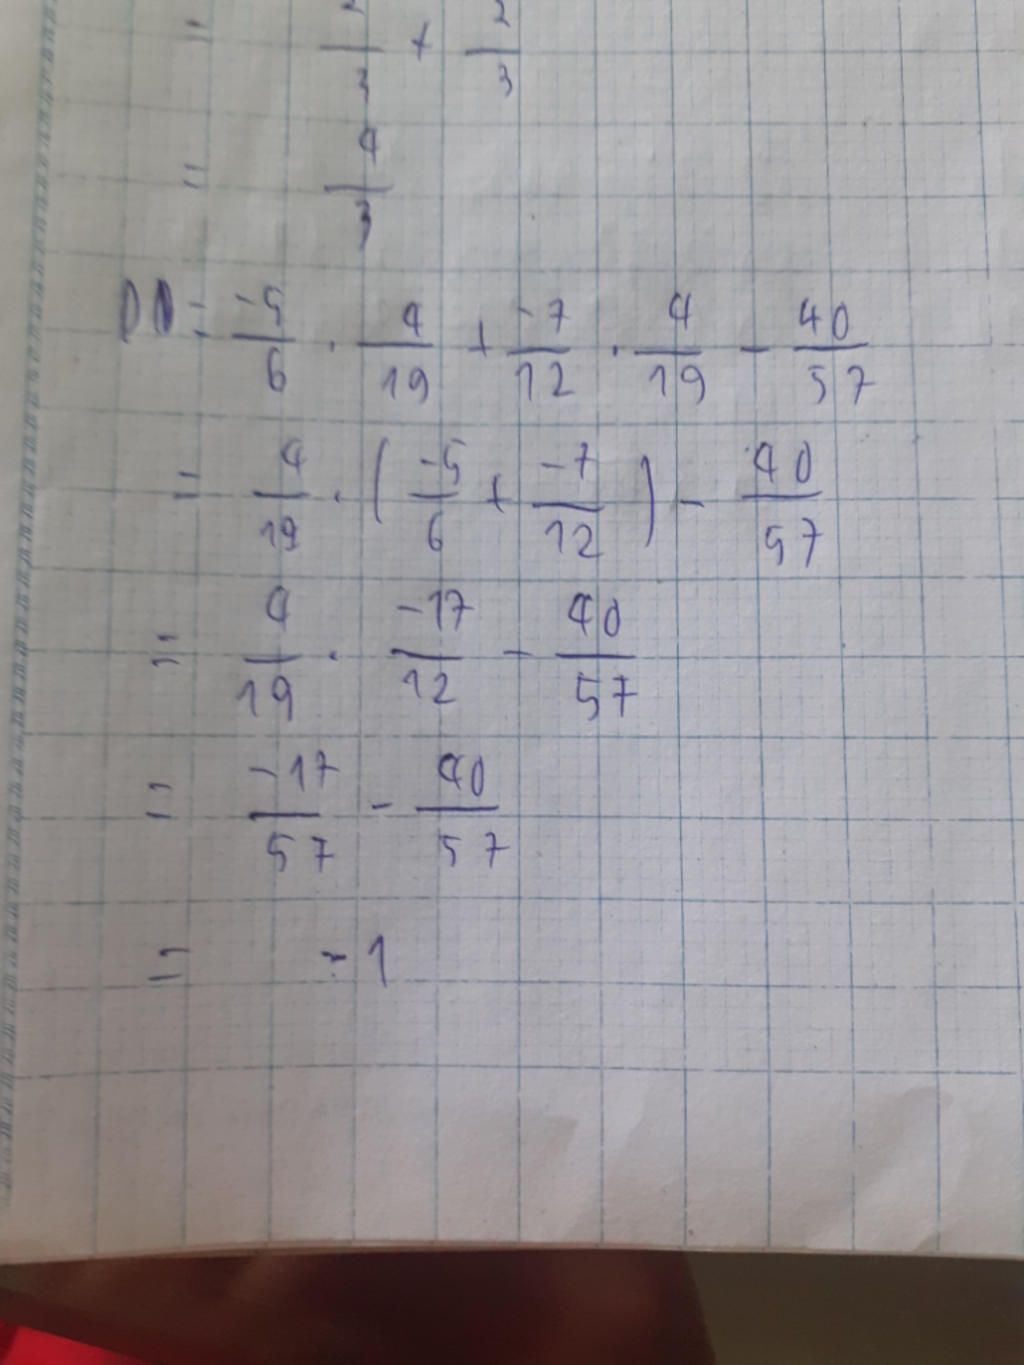 = 2/3 + 2/3
= 4/3
D = -5/6 . 4/19 + -7/12 . 4/19 - 40/57
= 4/19 . (-5/6 + -7/12) - 40/57
= 4/19 . -17/12 - 40/57
= -17/57 - 40/57
= -1